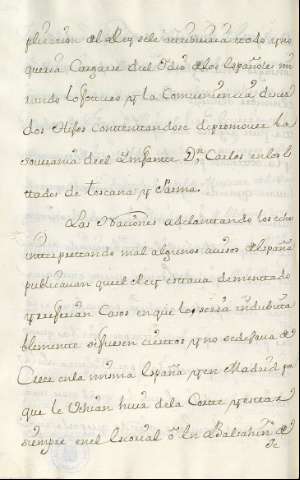 plicacion del Rey se le atribuia todo y no
queria Cargarse del Odio de los Españoles mi
rando los forceos y la Comvenencia de sus
dos Hijos Contentandose de promover la
soverania deel Infante Dn. Carlos en los Es
tados de toscana y Parma.
Las Naciones adelantando los echos
interpretando mal algunos avisos de España
publicavan que el Rey estava dementado
y referian Casos en que lo seria indubita
blemente si fuesen ciertos y no se dejava de
Creer en la misma España y en Madrid pa
que le Ohian huir de la Corte y estar
siempre en el Escorial ô en Balsahin de